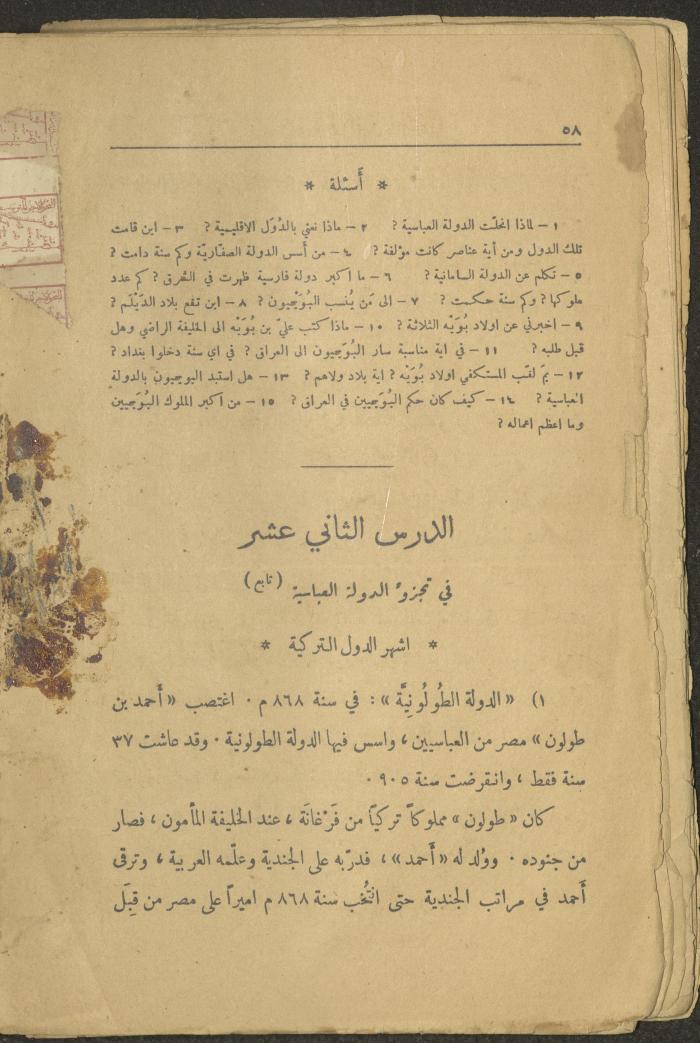 ٥٨
* أَسئلة *
١ – لماذا انحلّت الدولة العباسية ? ٢ – ماذا نعني بالدُوَل الاقليمية ? ٣ – اين قامت
تلك الدول ومن أية عناصر كانت مؤلفة ? ٤ – من أَسس الدولة الصفّاريّة وكم سنة دامت ?
٥ – تكلم عن الدولة السامانية ? ٦ – ما اكبر دولة فارسية ظهرت في الشرق ? كم عدد
ملوكها ? وكم سنة حكمت ? ٧ – الى مَن يُنسب البُوَيْهيون ? ٨ – اين تقع بلاد الدَّيْلَم ?
٩ – اخبرني عن اولاد بُوَيْه الثلاثة ? ١٠ – ماذا كتب عليّ بن بُوَيْه الى الخليفة الراضي وهل
قبل طلبه ? ١١ – في اية مناسبة سار البُوَيهيون الى العراق ? في اي سنة دخلوا بغداد ?
١٢ – بمَ لقّب المستكفي اولاد بُوَيْه ? اية بلاد ولاهم ? ١٣ – هل استبد البويهيون بالدولة
العباسية ? ١٤ – كيف كان حكم البُوَيهيين في العراق ? ١٥ – من اكبر الملوك البُوَيهيين
وما اعظم اعماله ?
الدرس الثاني عشر
في تجزوء الدولة العباسية (تابع)
* اشهر الدول التركية *
١) « الدولة الطُولُونيَّة » : في سنة ٨٦٨ م ٠ اغتصب « أَحمد بن
طولون » مصر من العباسيين ، واسس فيها الدولة الطولونية ٠ وقد عاشت ٣٧
سنة فقط ، وانقرضت سنة ٩٠٥ ٠
كان « طولون » مملوكاً تركيّاً من فَرْغانَة ، عند الخليفة المأمون ، فصار
من جنوده ٠ ووُلد له « أَحمد » ، فدرّبه على الجندية وعلّمه العربية ، وترقى
أَحمد في مراتب الجندية حتى انتُخب سنة ٨٦٨ م اميراً على مصر من قِبَل